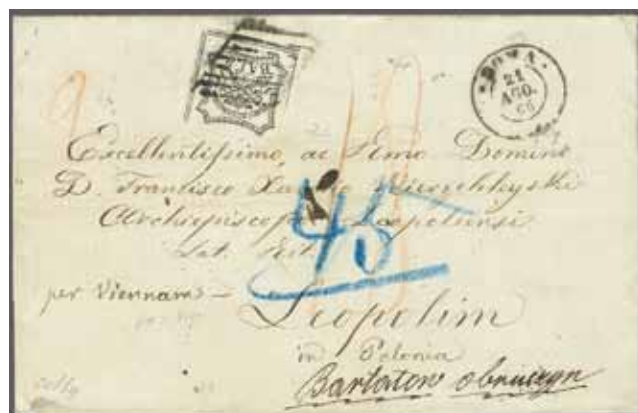 BAJ
ROMA
21
AGO.
66
Excellentissimo, ac Rmo Domino
D. Francisco Xaverio Wierzchleyski
Archiepiscopo Leopoliensi
Lat. Rit.
45
per Viennam –
Leopolim
in Polonia